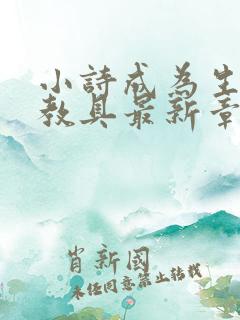 小詩成為生
教具最新章
肖新國
未经同意禁止转载